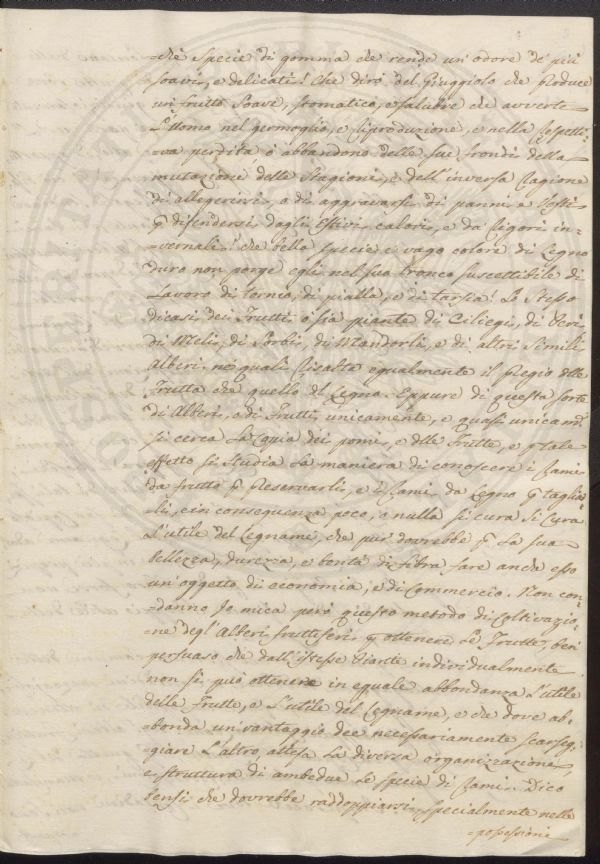 =chè specie di gomma che rende un'odore de più
soavi, e delicati! Che dirò del Giuggiolo che Produce
un frutto Soave, stomatico, e salubre che avverte
L'Uomo nel germoglio, e riproduzione, e nella Rispetti=
=va perdita ò abbandono delle sue frondi della
mutazione delle Stagioni, e dell'inversa Ragione
di allegerirsi, o di aggravarsi di panni, e Vesti
p difendersi dagli Estivi calori, e da Rigori in=
=vernali! che bella specie, e vago colore di Legno
duro non porge egli nel suo tronco suscettibile di
Lavoro di tornio, di pialla, e di tarsia! Lo Stesso
dicasi dei Frutti, ò sia piante di Ciliegi, di Peri,
di Meli, di Sorbi, di Mandorli, e di altri Simili
Alberi, ne quali Risalta egualmente il Pregio delle
Frutta che quello del Legno. Eppure di questa sorte
di Alberi, o di Frutti unicamente, e quasi unicam.
si cerca La Copia dei pomi, e delle Frutte, e p tale
effetto si Studia La maniera di conoscere i Rami
da frutto p Preservarli, e i Rami da Legno p taglia=
=li, e in conseguenza poco, o nulla si cura si Cura
L'utile del Legname, che pur dovrebbe p La sua
bellezza, durezza, e bontà di fibra fare anch'esso
un'oggetto di economia, e di Commercio. Non con=
=danno Jo mica però questo metodo di Coltivazio=
=ne degl'Alberi fruttiferi p ottenere Le Frutte, ben
persuaso che dall'istesse Piante individualmente
non si può ottenere in eguale abbondanza L'utile
delle Frutte, e L'utile del Legname, e che dove ab=
=bonda un'vantaggio dee necessariamente scarseg=
=giare L'altro, attesa La diversa organizzazione,
e struttura di ambedue Le specie di Rami. Dico
bensì che dovrebbe raddoppiarsi specialmente nelle
=possessioni